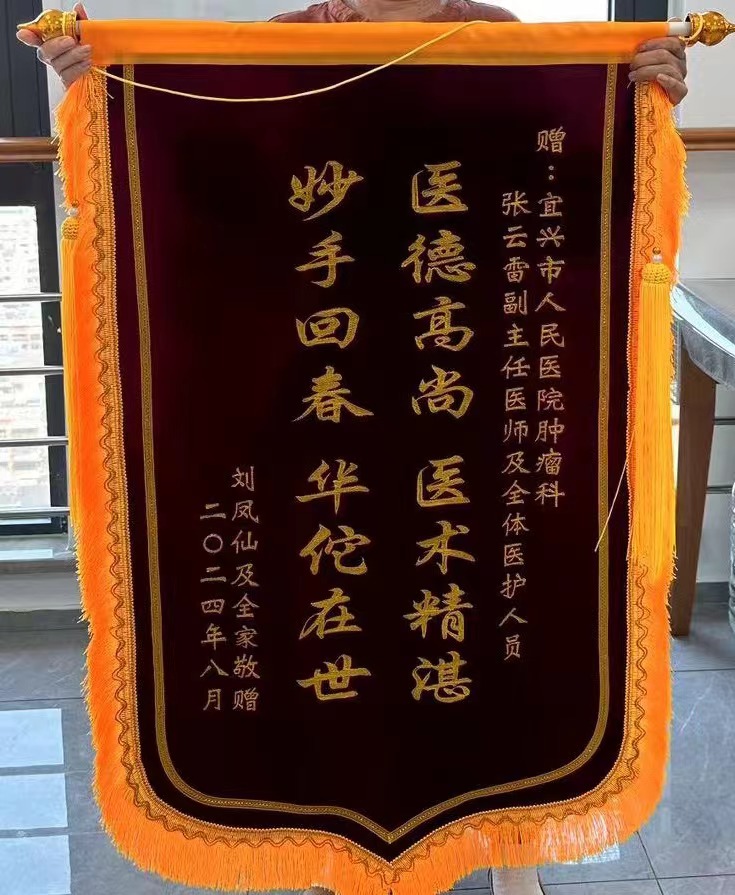 赠：宜兴市人民医院肿瘤科
张云雷副主任医师及全体医护人员
医德高尚 医术精湛
妙手回春 华佗在世
刘凤仙及全家敬赠
二〇二四年八月